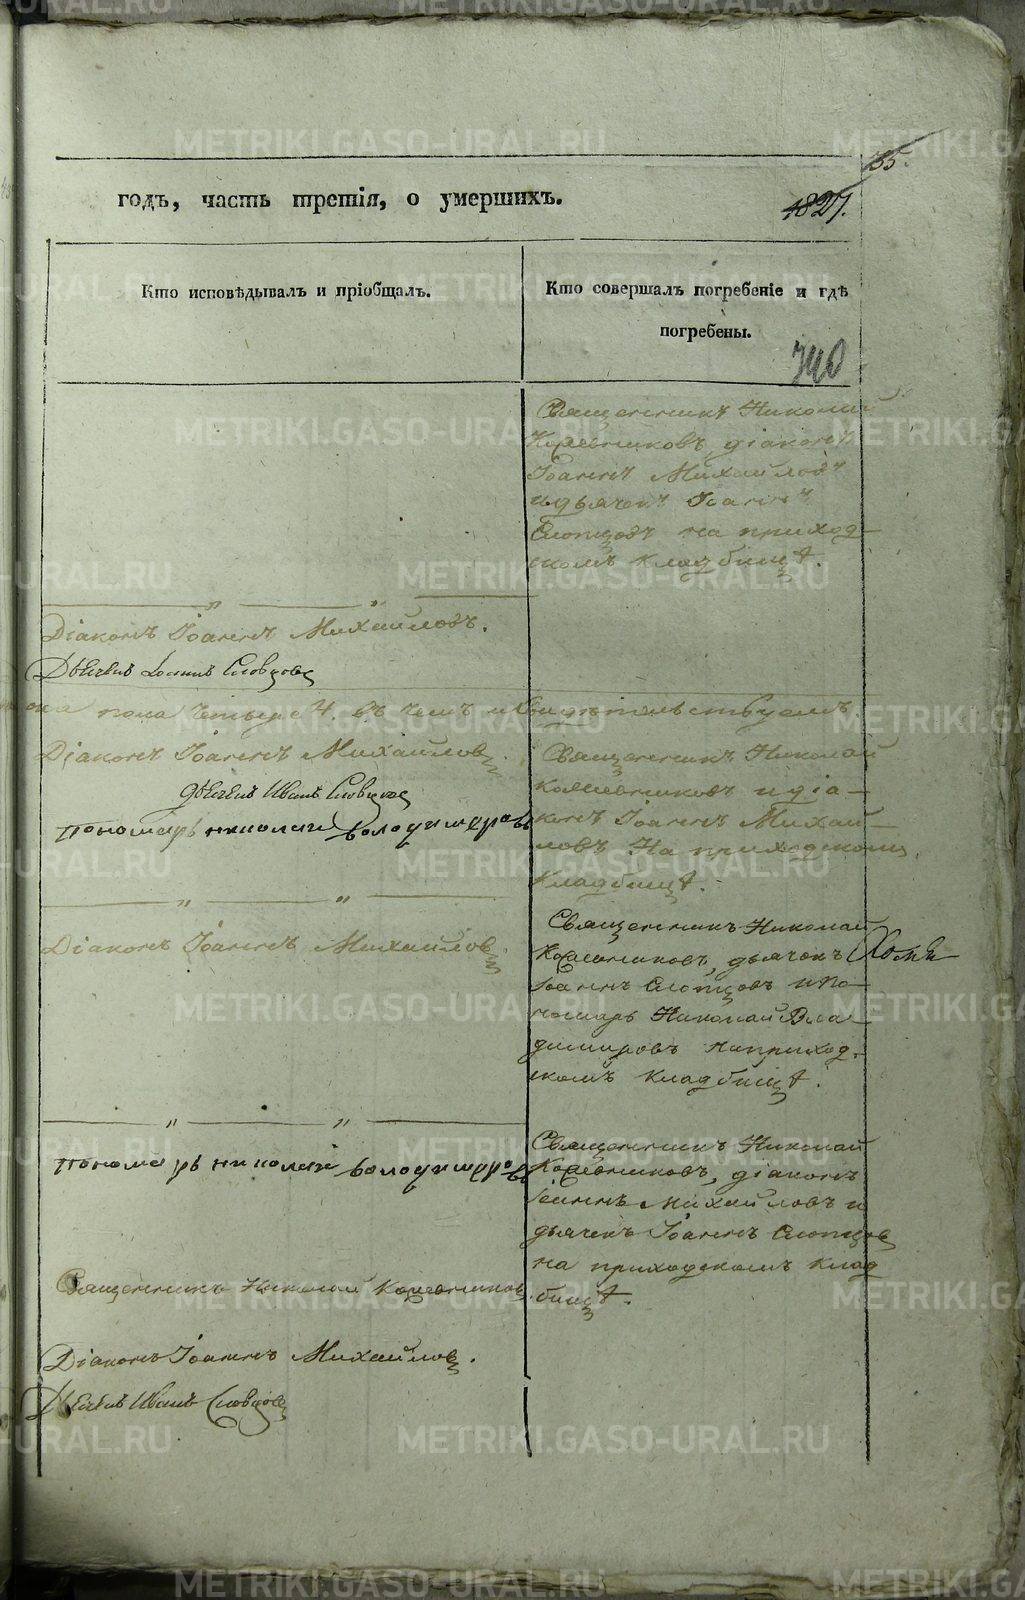 METRIKI.GASO-URAL.RU
35.
годъ, часть третія, о умершихъ.
1827.
Кто исповѣдывалъ и пріобщалъ.
Кто совершалъ погребеніе и гдѣ
погребены.
740
Священникъ Николай
Кожевниковъ, діаконъ
Іоаннъ Михайловъ
и дьячекъ Іоаннъ
Слопцовъ на приход-
скомъ кладбищѣ.
Діаконъ Іоаннъ Михайловъ.
Дьячекъ Іоаннъ Словцовъ
пола четыре 4. въ чемъ и свидѣтельствуемъ
Діаконъ Іоаннъ Михайловъ.
дьячекъ Иванъ Словцовъ
пономарь николаи володимеровъ
Священникъ Николай
Кожевниковъ и діа-
конъ Іоаннъ Михай-
ловъ На приходскомъ
кладбищѣ.
Діаконъ Іоаннъ Михайловъ.
Священникъ Николай
Кожевниковъ, дьячокъ
Іоаннъ Слопцовъ и по-
номарь Николай Вла-
димировъ на приход-
скомъ кладбищѣ.
пономарь николаи володимеровъ
Священникъ Николай
Кожевниковъ, діаконъ
Іоаннъ Михайловъ и
дьячекъ Іоаннъ Слопцов
на приходскомъ клад
бищѣ.
Священникъ Николай Кожевников.
Діаконъ Іоаннъ Михайловъ.
Дьячекъ Иванъ Словцовъ